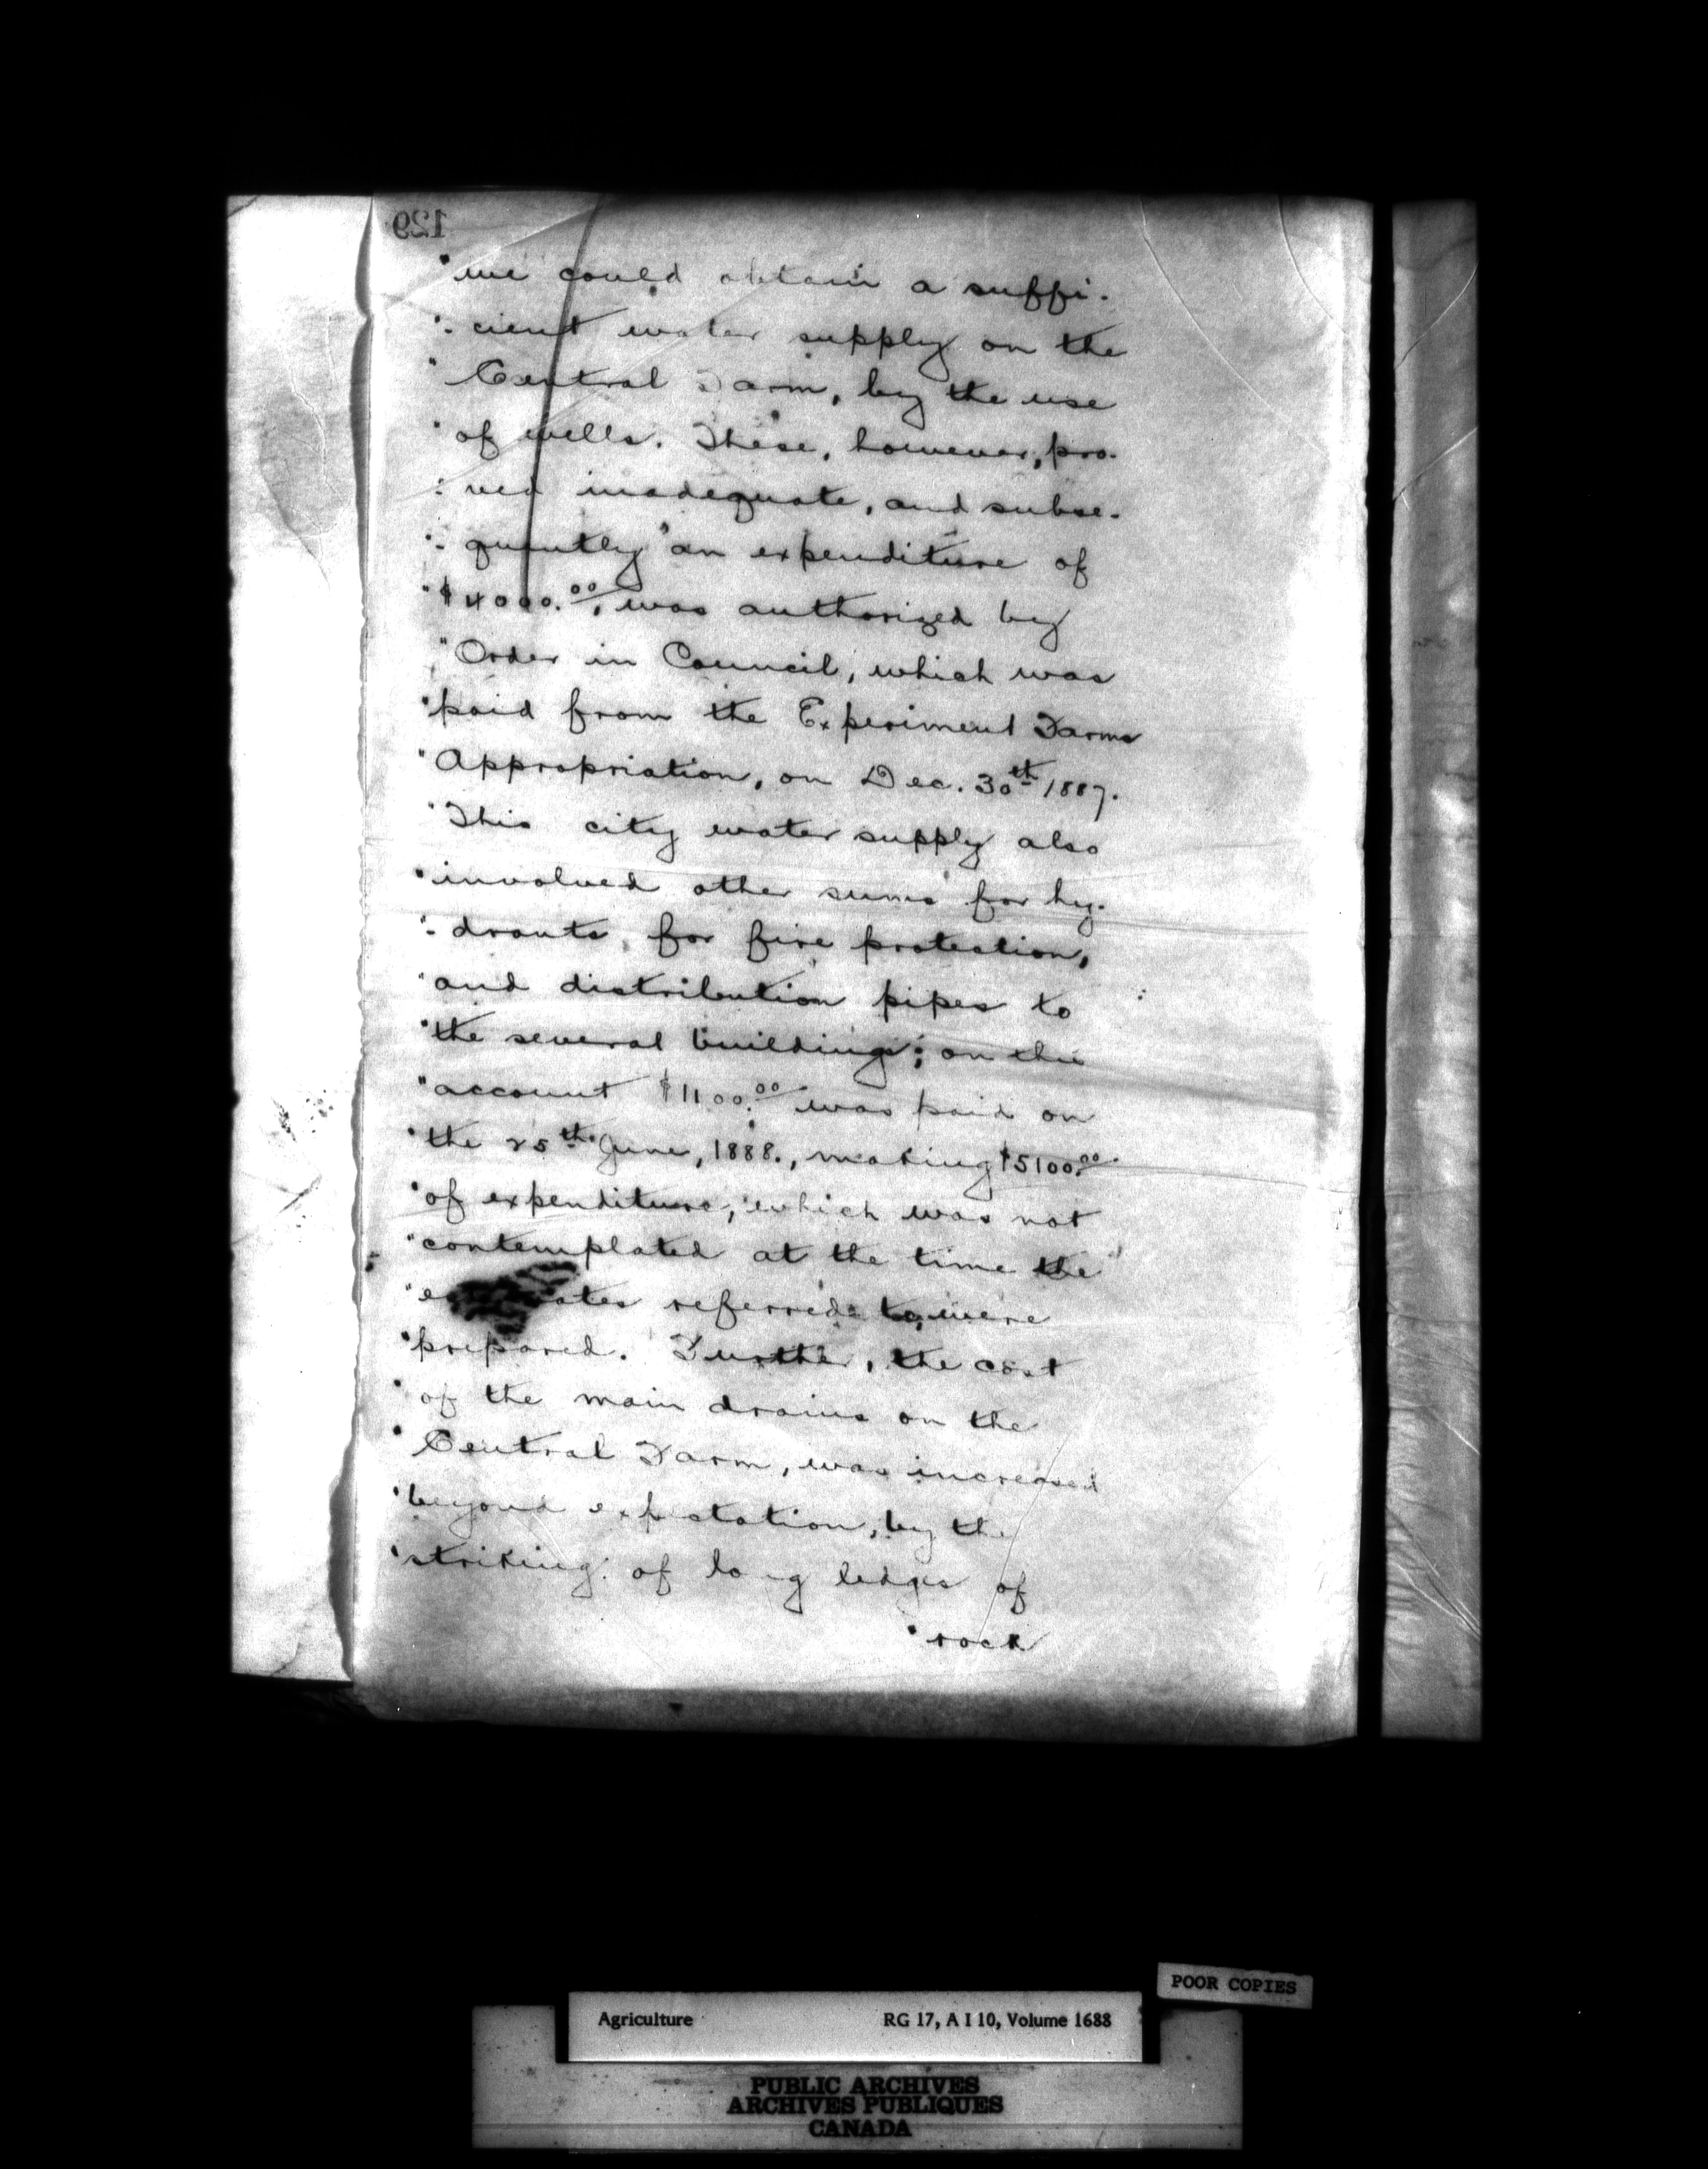 129
"we could obtain a suffi-
"-cient water supply on the
"Central Farm, by the use
"of wells. These, however, pro-
"-ved inadequate, and subse-
"-quently an expenditure of
"$4000.00, was authorized by
"Order in Council, which was
"paid from the Experiment Farms
"Appropriation, on Dec. 30th 1887.
"This city water supply also
"involved other sums for hy-
"-drants, for fire protection,
"and distribution pipes to
"the several buildings; on this
"account $1100.00 was paid on
"the 25th June, 1888., making $5100.00
"of expenditure, which was not
"contemplated at the time the
"estimates referred to, were
"prepared. Further, the cost
"of the main drains on the
"Central Farm, was increased
"beyond expectation, by the
"striking of long ledges of
"rock
POOR COPIES
Agriculture RG 17, A I 10, Volume 1688
PUBLIC ARCHIVES
ARCHIVES PUBLIQUES
CANADA